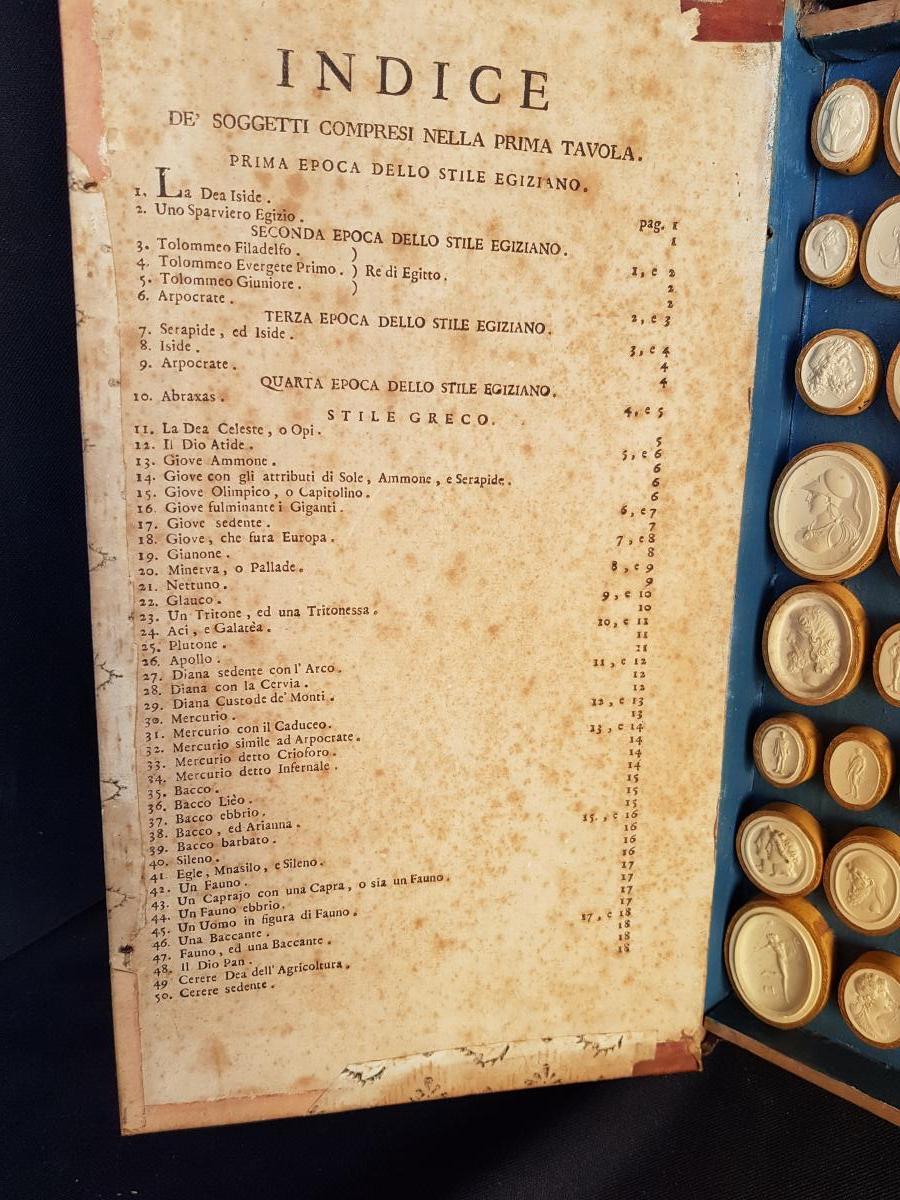 INDICE
DE' SOGGETTI COMPRESI NELLA PRIMA TAVOLA.
PRIMA EPOCA DELLO STILE EGIZIANO.
1. La Dea Iside. pag. 1
2. Uno Sparviero Egizio. 1
SECONDA EPOCA DELLO STILE EGIZIANO.
3. Tolommeo Filadelfo. ) 1, e 2
4. Tolommeo Evergete Primo. ) Re di Egitto. 2
5. Tolommeo Giuniore. ) 2
6. Arpocrate. 2, e 3
TERZA EPOCA DELLO STILE EGIZIANO.
7. Serapide, ed Iside. 3, e 4
8. Iside. 4
9. Arpocrate. 4
QUARTA EPOCA DELLO STILE EGIZIANO.
10. Abraxas. 4, e 5
STILE GRECO.
11. La Dea Celeste, o Opi. 5
12. Il Dio Atide. 5, e 6
13. Giove Ammone. 6
14. Giove con gli attributi di Sole, Ammone, e Serapide. 6
15. Giove Olimpico, o Capitolino. 6
16. Giove fulminante i Giganti. 6, e 7
17. Giove sedente. 7
18. Giove, che fura Europa. 7, e 8
19. Giunone. 8
20. Minerva, o Pallade. 8, e 9
21. Nettuno. 9
22. Glauco. 9, e 10
23. Un Tritone, ed una Tritonessa. 10
24. Aci, e Galatèa. 10, e 11
25. Plutone. 11
26. Apollo. 11
27. Diana sedente con l'Arco. 11, e 12
28. Diana con la Cervia. 12
29. Diana Custode de' Monti. 12
30. Mercurio. 12, e 13
31. Mercurio con il Caduceo. 13
32. Mercurio simile ad Arpocrate. 13, e 14
33. Mercurio detto Crioforo. 14
34. Mercurio detto Infernale. 14
35. Bacco. 14
36. Bacco Lièo. 15
37. Bacco ebbrio. 15
38. Bacco, ed Arianna. 15
39. Bacco barbato. 15., e 16
40. Sileno. 16
41. Egle, Mnasilo, e Sileno. 16
42. Un Fauno. 16
43. Un Caprajo con una Capra, o sia un Fauno. 17
44. Un Fauno ebbrio. 17
45. Un Uomo in figura di Fauno. 17
46. Una Baccante. 17
47. Fauno, ed una Baccante. 17, e 18
48. Il Dio Pan. 18
49 Cerere Dea dell'Agricoltura. 18
50. Cerere sedente. 18